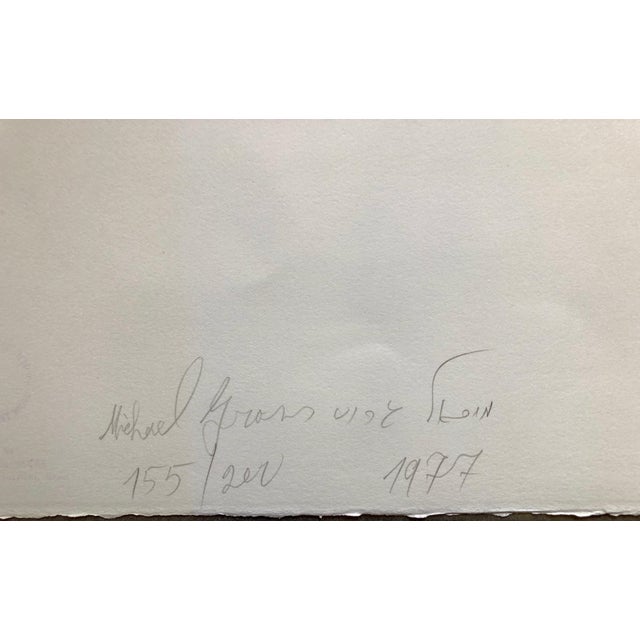 Michael Gross גרוס מיכאל
155/200 1977